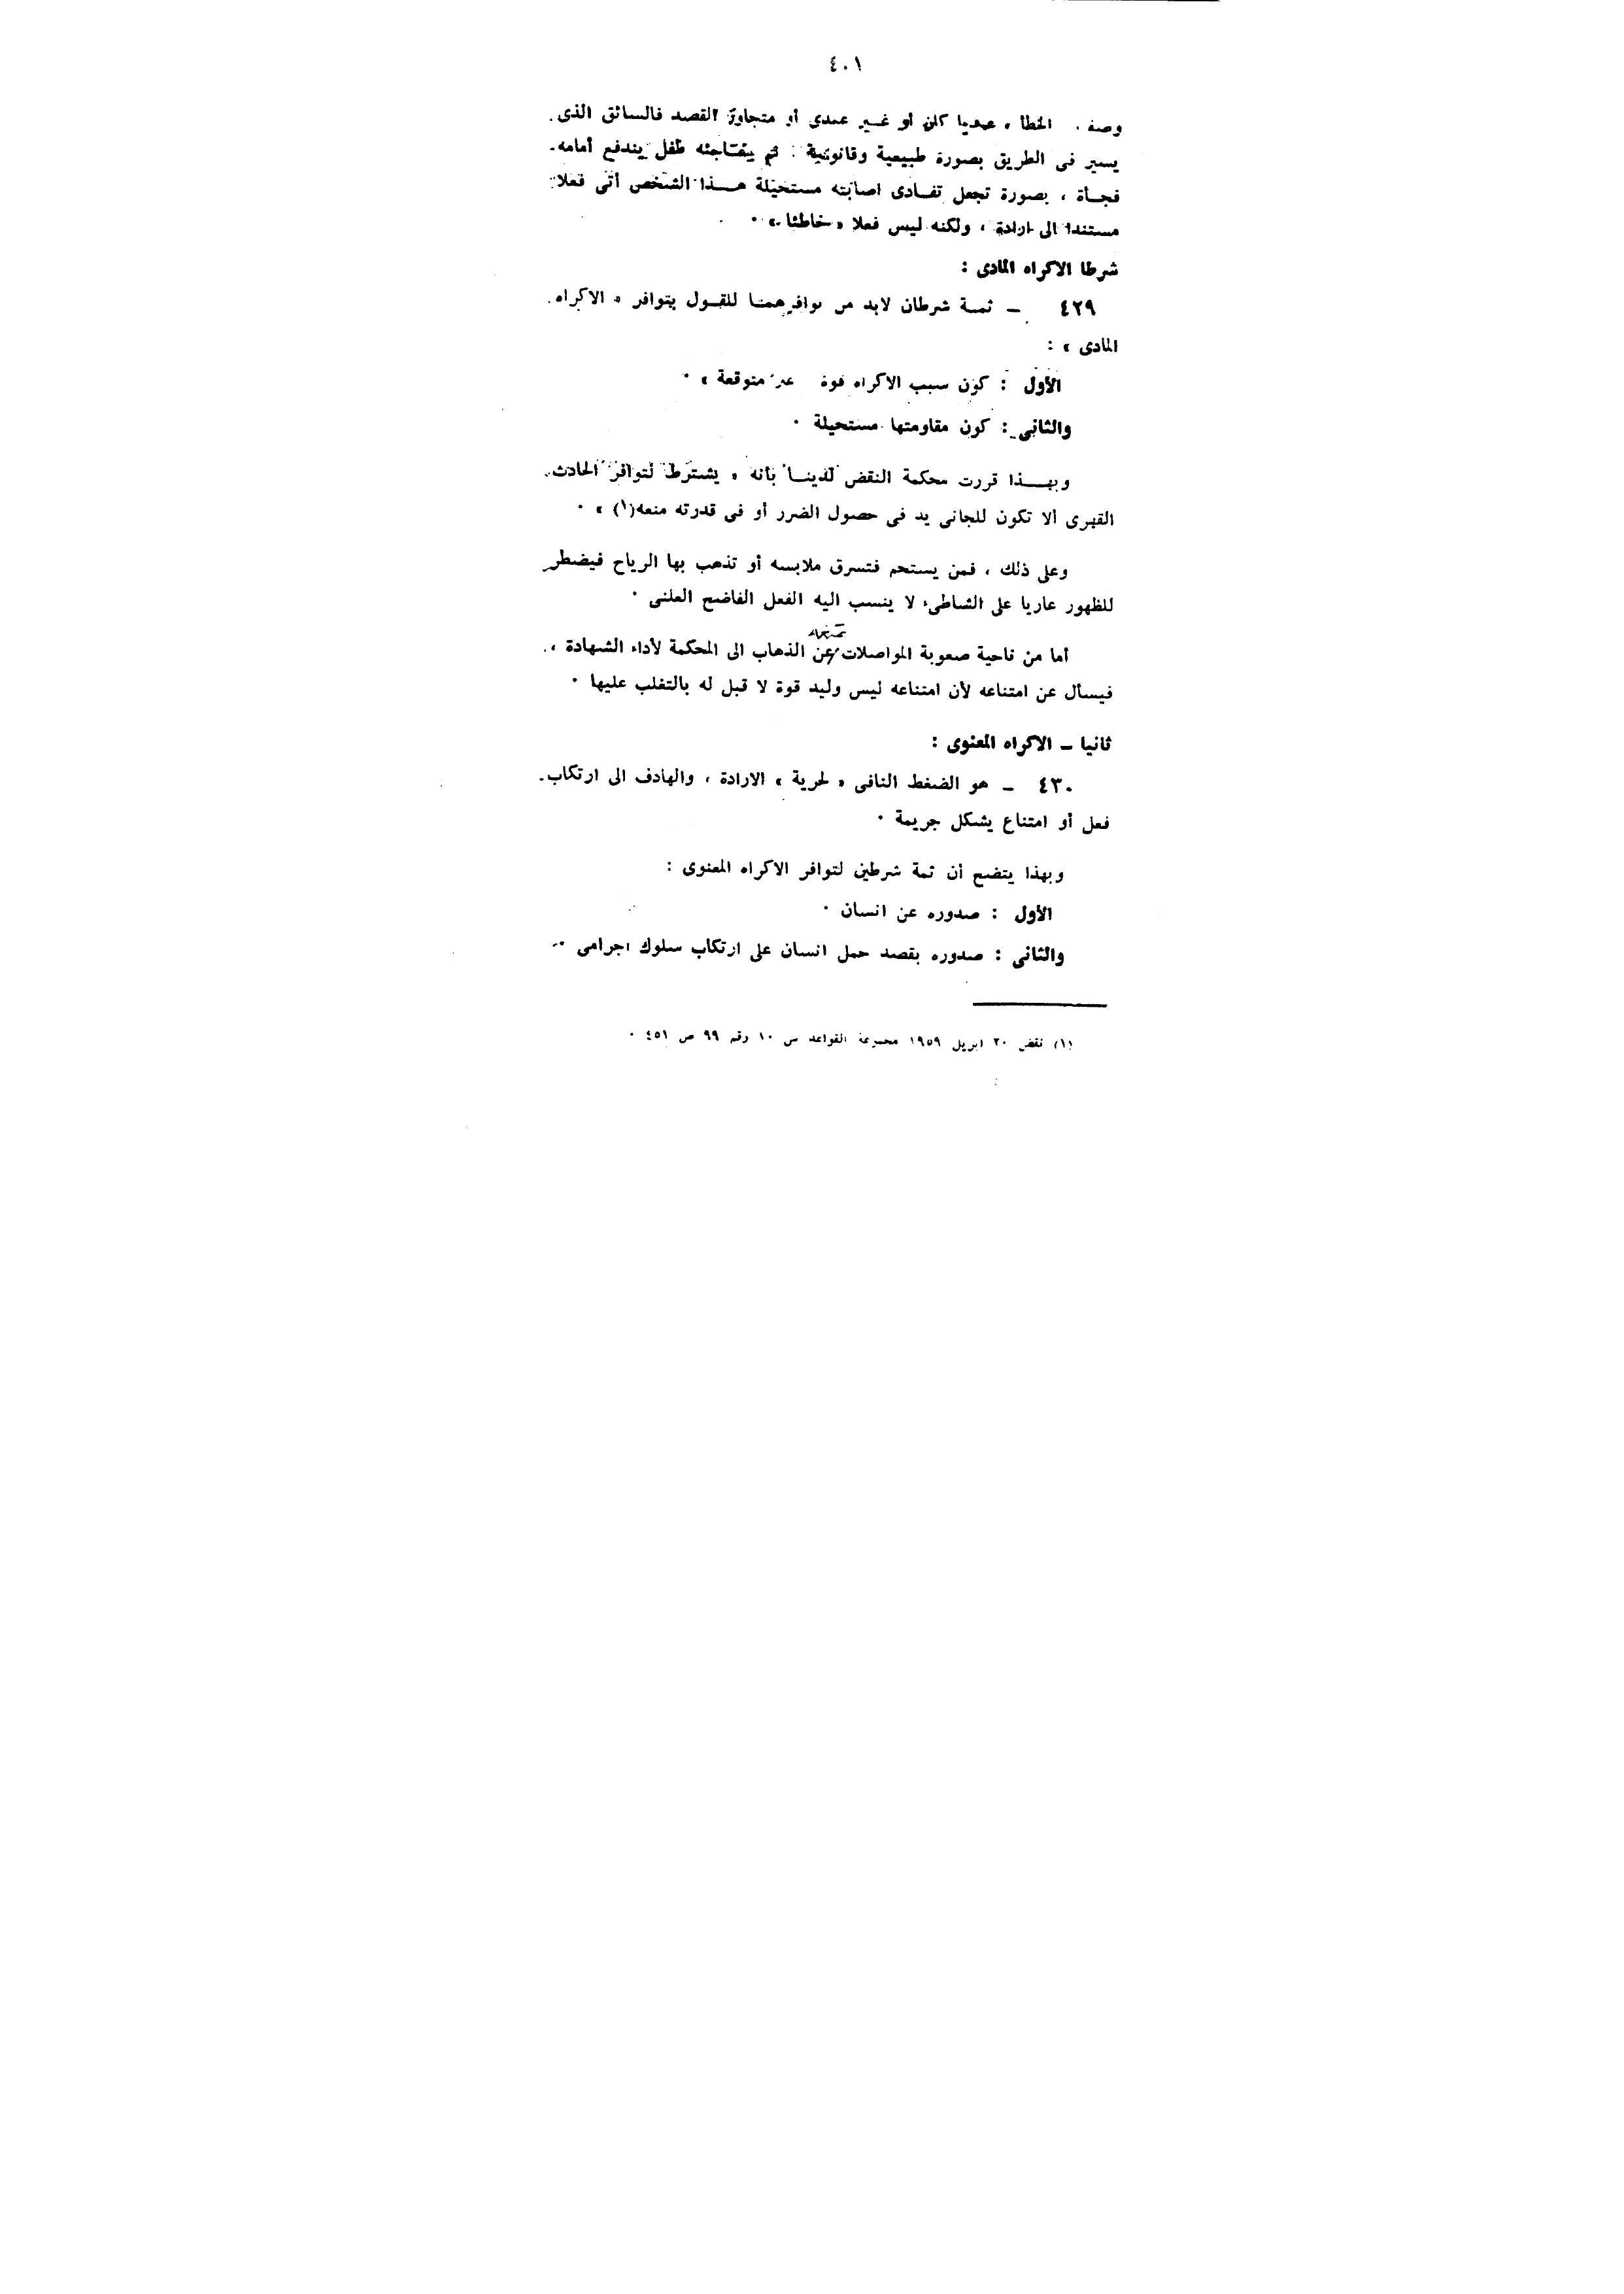 ٤٠١
وصف الخطأ ، عمديا كان أو غير عمدى أو متجاوز القصد فالسائق الذى
يسير فى الطريق بصورة طبيعية وقانونية ثم يفاجئه طفل يندفع أمامه
فجأة ، بصورة تجعل تفادى اصابته مستحيلة هذا الشخص أتى فعلا
مستندا الى ارادة ، ولكنه ليس فعلا « خاطئا » ٠
شرطا الاكراه المادى :
٤٢٩ ــ ثمة شرطان لابد من توافرهما للقول بتوافر « الاكراه
المادى » :
الأول : كون سبب الاكراه قوة غير متوقعة » ٠
والثانى : كون مقاومتها مستحيلة ٠
وبهذا قررت محكمة النقض لدينا بأنه « يشترط لتوافر الحادث
القهرى ألا تكون للجانى يد فى حصول الضرر أو فى قدرته منعه(١) » ٠
وعلى ذلك ، فمن يستحم فتسرق ملابسه أو تذهب بها الرياح فيضطر
للظهور عاريا على الشاطىء لا ينسب اليه الفعل الفاضح العلنى ٠
أما من ناحية صعوبة المواصلات عن الذهاب الى المحكمة لأداء الشهادة ،
فيسأل عن امتناعه لأن امتناعه ليس وليد قوة لا قبل له بالتغلب عليها ٠
ثانيا ــ الاكراه المعنوى :
٤٣٠ ــ هو الضغط النافى « لحرية » الارادة ، والهادف الى ارتكاب
فعل أو امتناع يشكل جريمة ٠
وبهذا يتضح أن ثمة شرطين لتوافر الاكراه المعنوى :
الأول : صدوره عن انسان ٠
والثانى : صدوره بقصد حمل انسان على ارتكاب سلوك اجرامى ٠
(١) نقض ٢٠ ابريل ١٩٥٩ مجموعة القواعد س ١٠ رقم ٩٩ ص ٤٥١ ٠